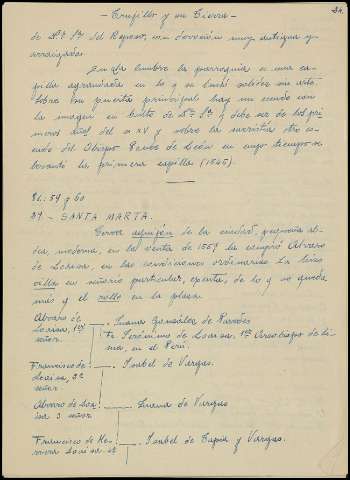 - Trujillo y su Tierra -
de Nª Sª del Reposo, con devoción muy antigua y
arraigada.
En La Cumbre la parroquia es una ca-
pilla agrandada en lo y se lució solidez sin arte
Sobre la puerta principal hay un escudo con
la imagen en busto de Nª Sª y debe ser de los pri-
meros años del s XV y sobre la sacristía otro es-
cudo del Obispo Ponce de León en cuyo tiempo se
levantó la primera capilla (1545).
Ll. 59 y 60
27 - SANTA MARTA.
Como aquijón de la ciudad, pequeña al-
dea, moderna, en la venta de 1559 la compró Alvaro
de Loaisa, en las condiciones ordinarias. La hizo
villa en señorio particular, exenta, de lo y no queda
mas q el rollo en la plaza.
Alvaro de
Loaisa, 1er
señor.
Juana González de Paredes
Fr Jerónimo de Loaisa, 1er Arzobispo de Li-
ma, en el Perú.
Francisco de
Loaisa, 2º
señor.
Isabel de Vargas.
Alvaro de Loa-
isa 3 señor.
Juana de Vargas
Francisco de He-
rrera Loaisa 4º
Isabel de Tapia y Vargas.